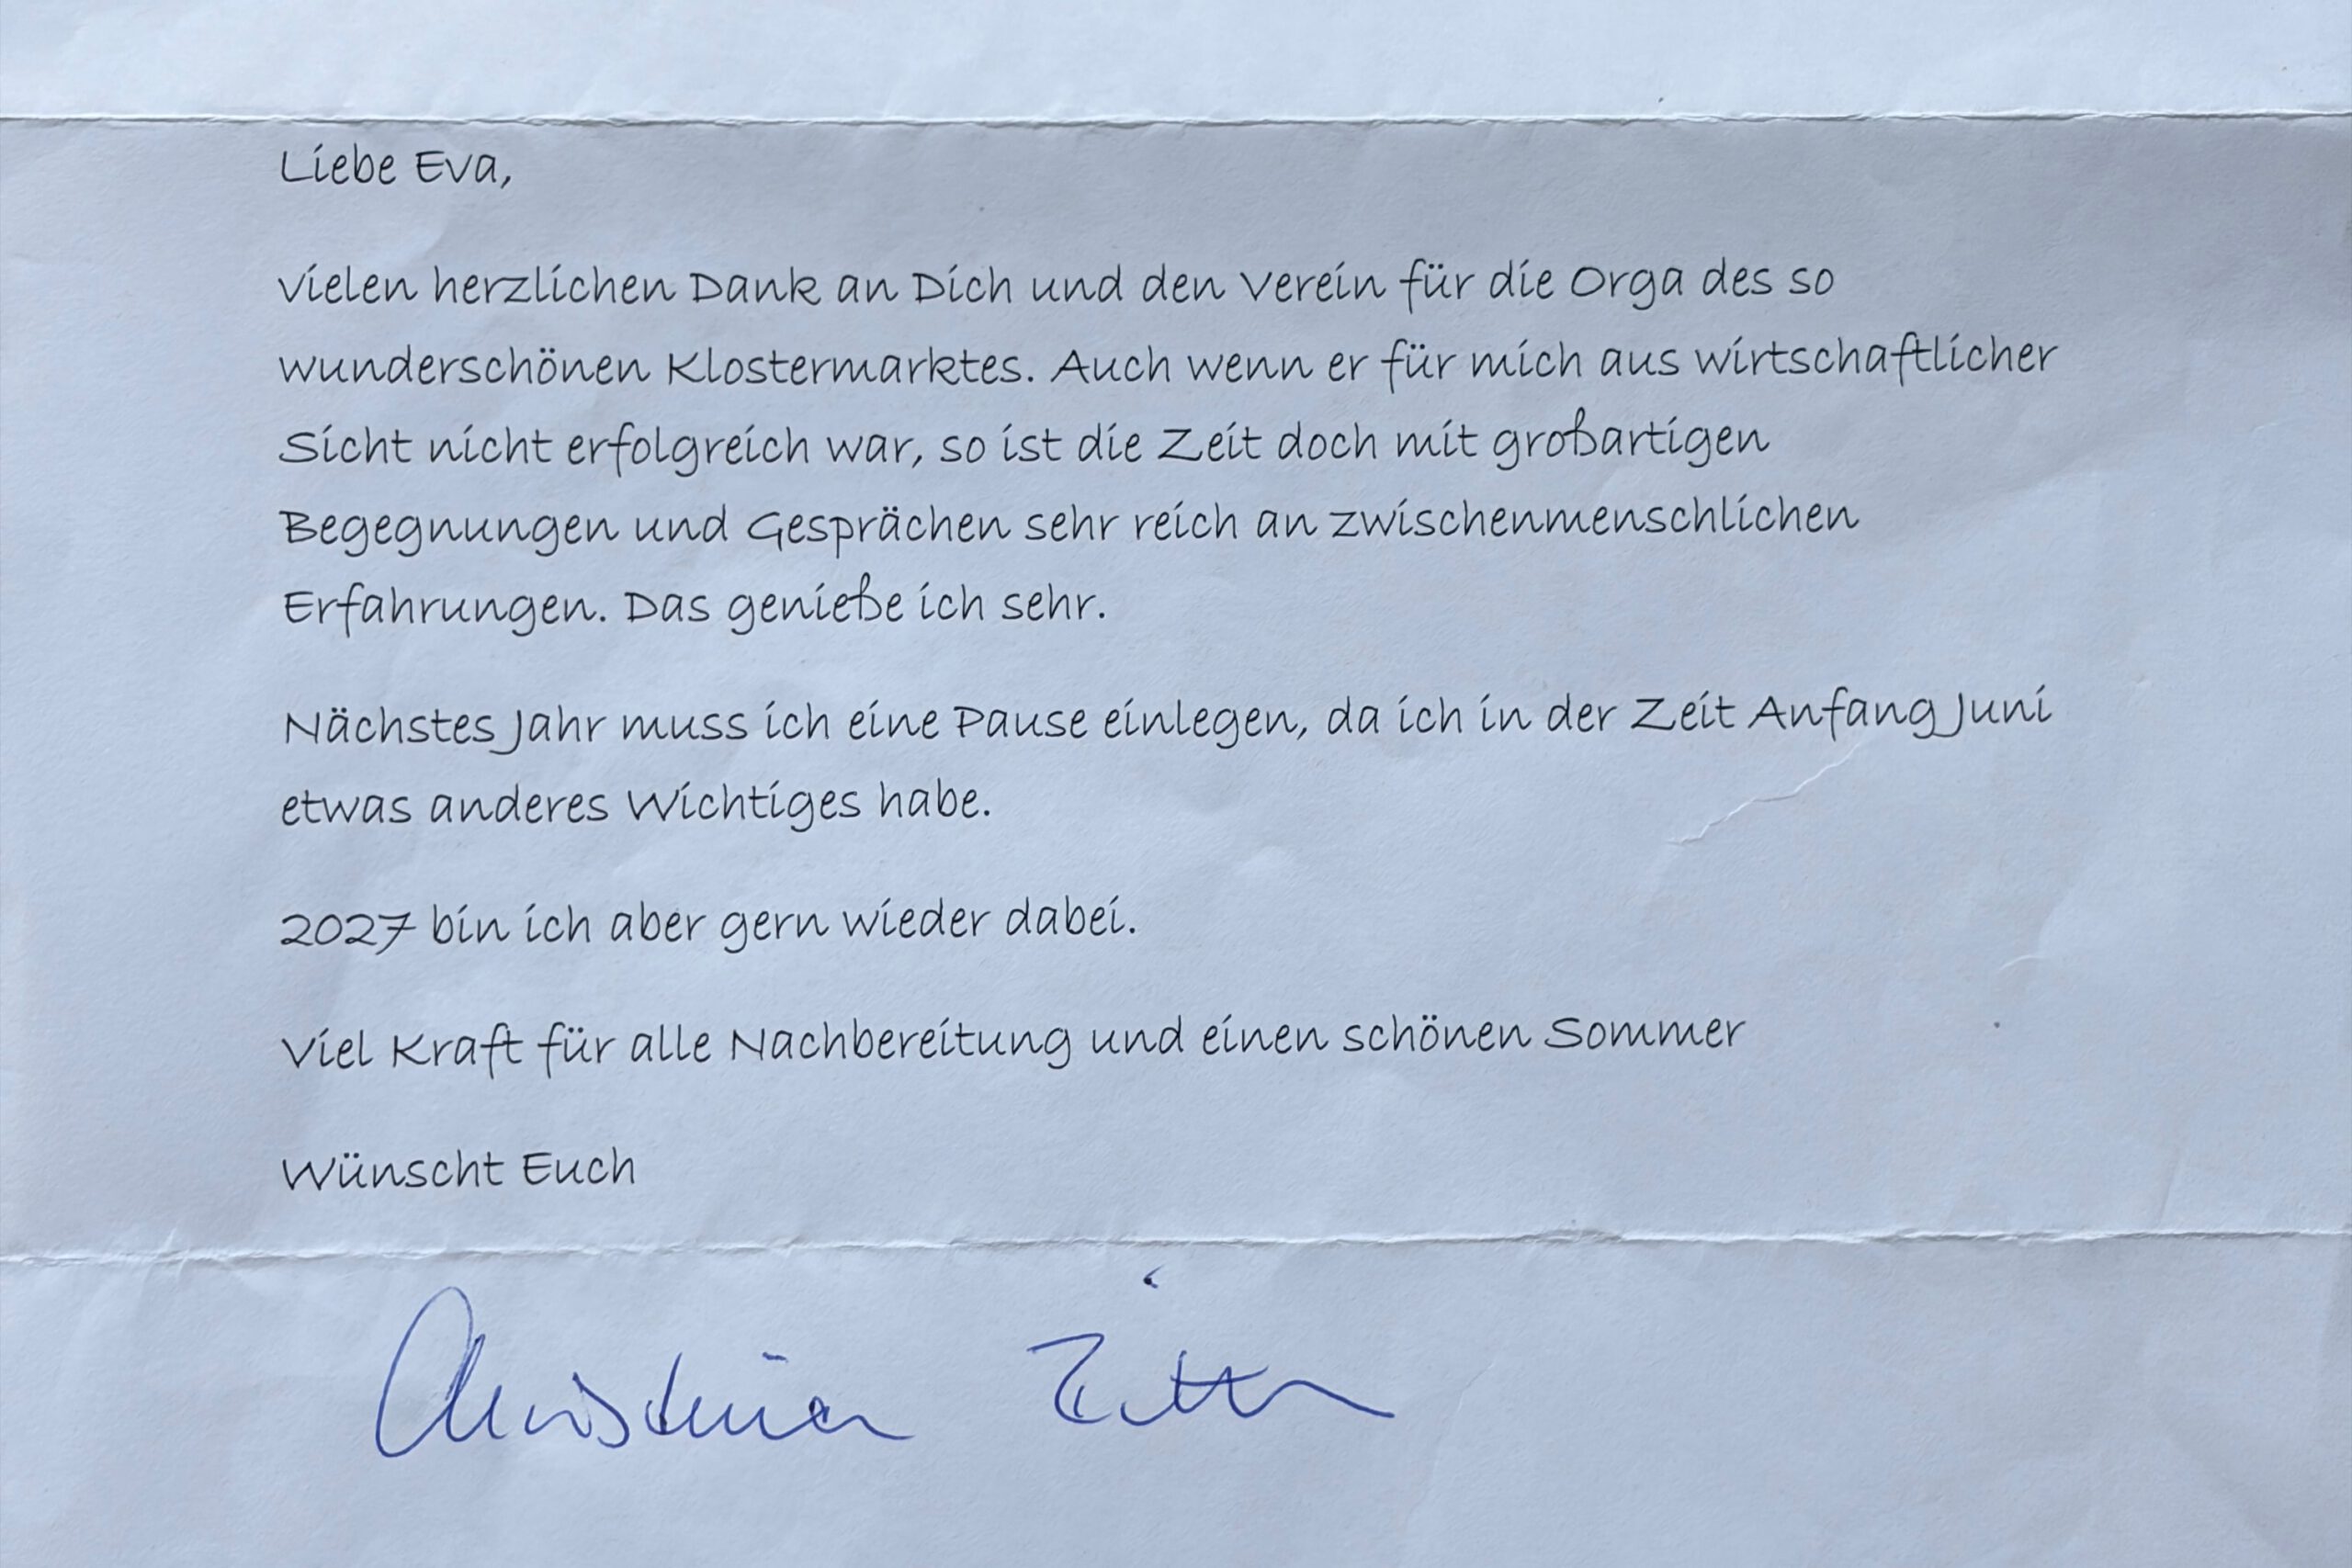 Liebe Eva,
vielen herzlichen Dank an Dich und den Verein für die Orga des so
wunderschönen Klostermarktes. Auch wenn er für mich aus wirtschaftlicher
Sicht nicht erfolgreich war, so ist die Zeit doch mit großartigen
Begegnungen und Gesprächen sehr reich an zwischenmenschlichen
Erfahrungen. Das genieße ich sehr.
Nächstes Jahr muss ich eine Pause einlegen, da ich in der Zeit Anfang Juni
etwas anderes Wichtiges habe.
2027 bin ich aber gern wieder dabei.
Viel Kraft für alle Nachbereitung und einen schönen Sommer
Wünscht Euch
Christina